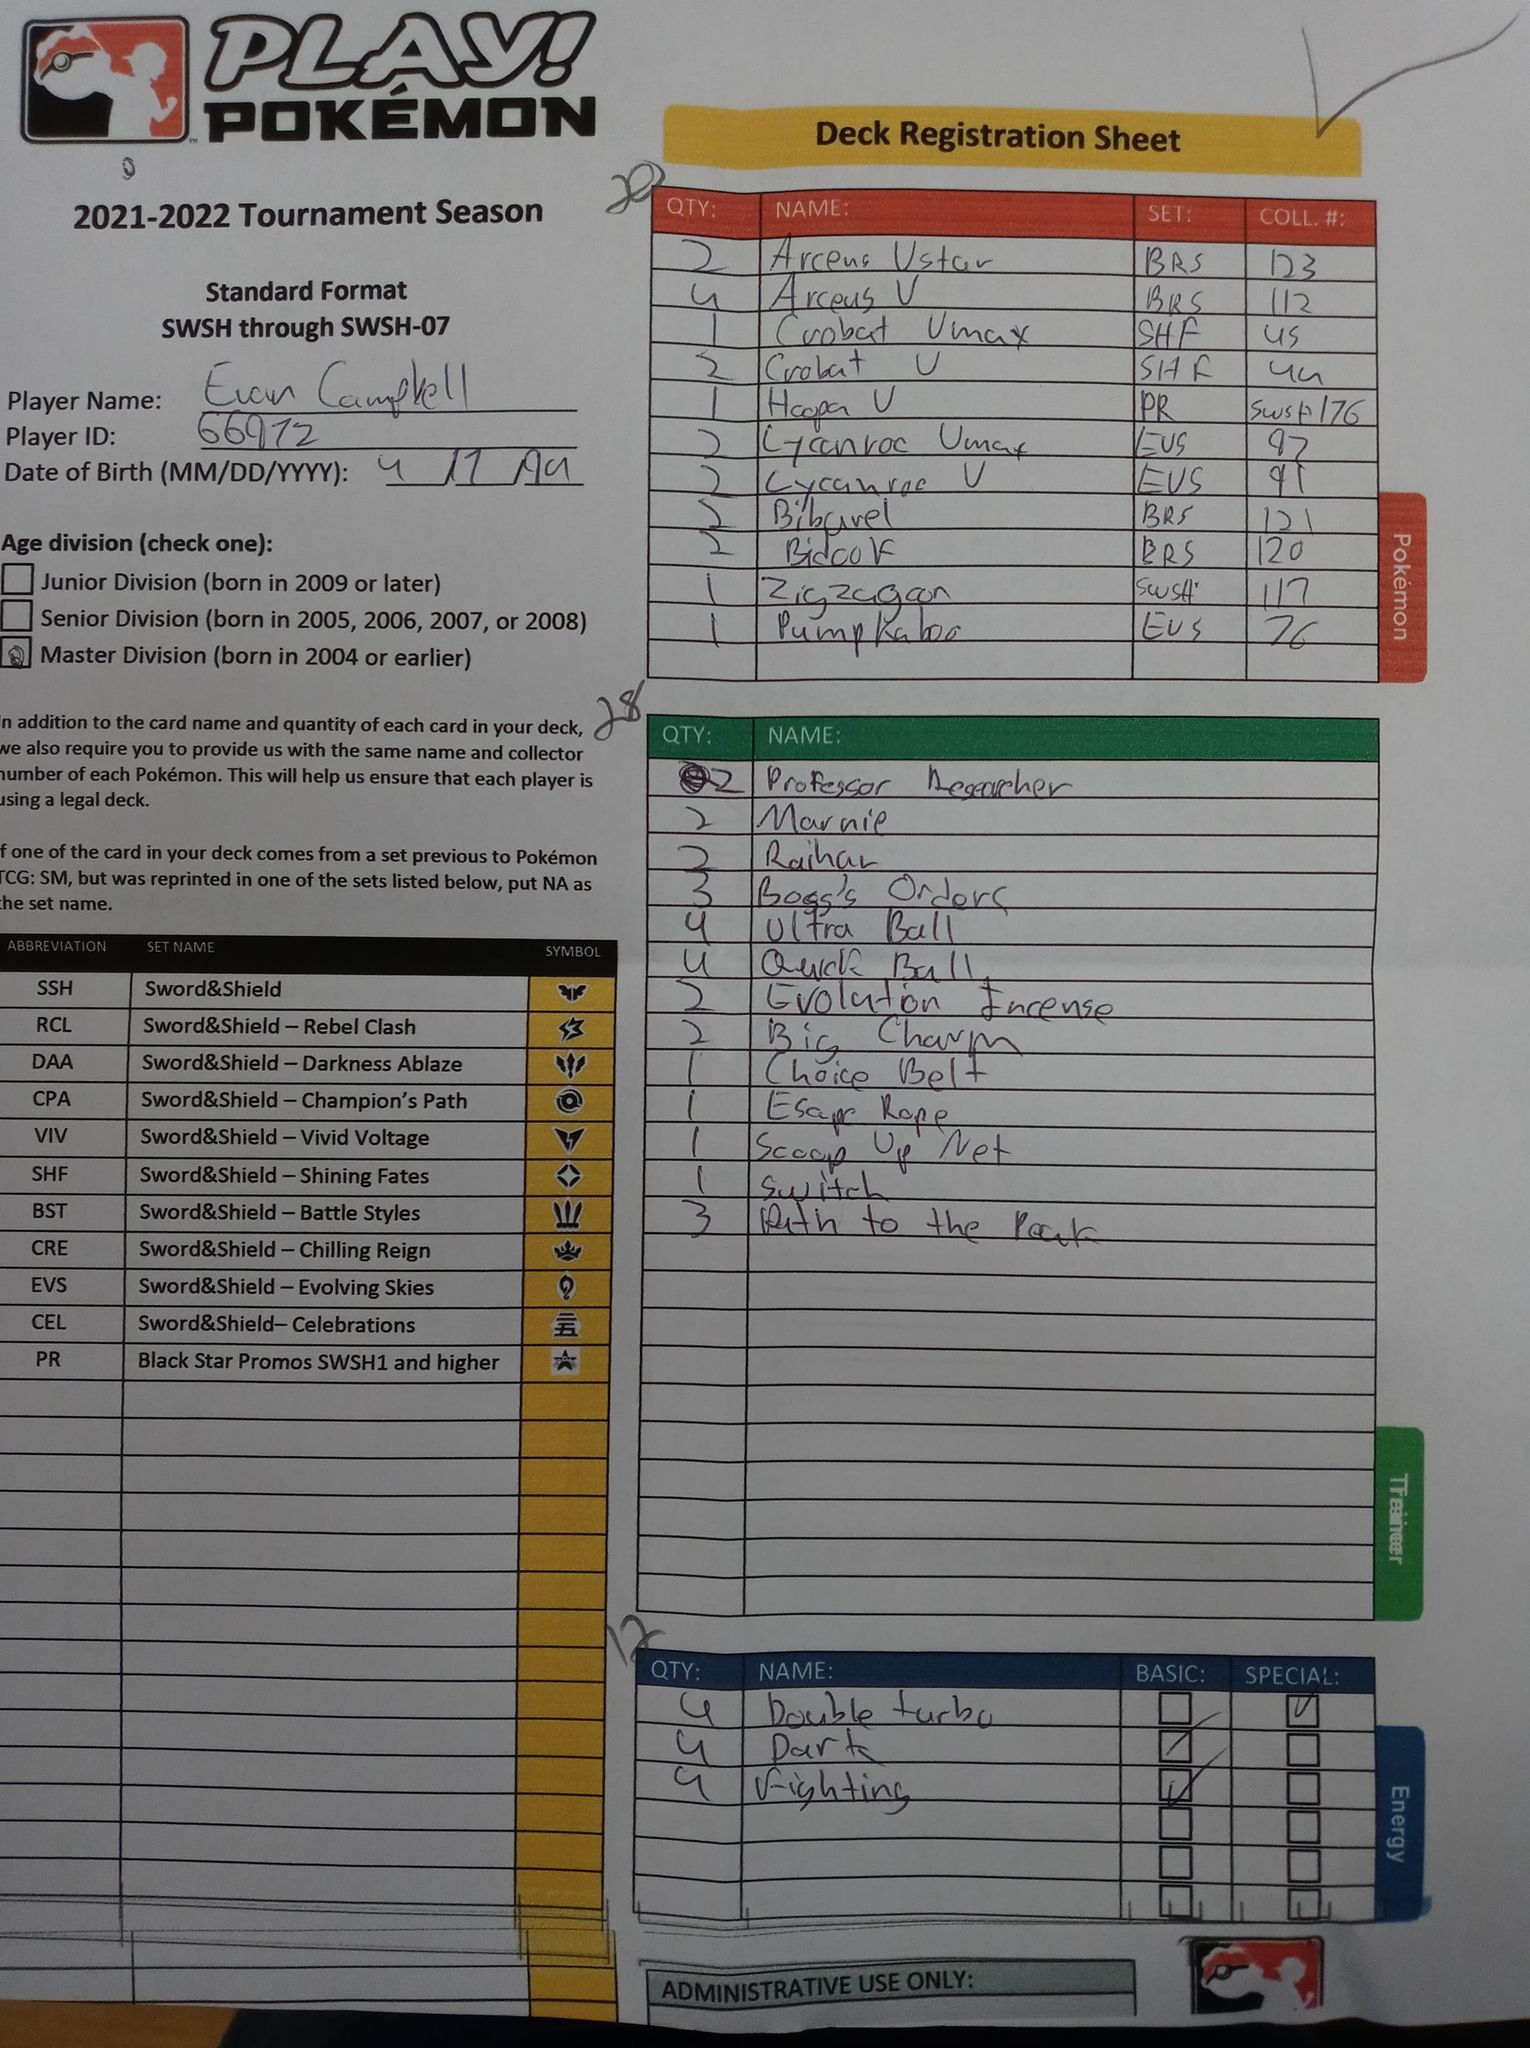 PLAY!
POKÉMON
2021-2022 Tournament Season
Standard Format
SWSH through SWSH-07
Player Name: Evan Campbell
Player ID: 66972
Date of Birth (MM/DD/YYYY): 4 / 17 / 94
Age division (check one):
Junior Division (born in 2009 or later)
Senior Division (born in 2005, 2006, 2007, or 2008)
Master Division (born in 2004 or earlier)
In addition to the card name and quantity of each card in your deck,
we also require you to provide us with the same name and collector
number of each Pokémon. This will help us ensure that each player is
using a legal deck.
If one of the card in your deck comes from a set previous to Pokémon
TCG: SM, but was reprinted in one of the sets listed below, put NA as
the set name.
ABBREVIATION SET NAME SYMBOL
SSH Sword&Shield
RCL Sword&Shield – Rebel Clash
DAA Sword&Shield – Darkness Ablaze
CPA Sword&Shield – Champion's Path
VIV Sword&Shield – Vivid Voltage
SHF Sword&Shield – Shining Fates
BST Sword&Shield – Battle Styles
CRE Sword&Shield – Chilling Reign
EVS Sword&Shield – Evolving Skies
CEL Sword&Shield– Celebrations
PR Black Star Promos SWSH1 and higher
Deck Registration Sheet
20
QTY: NAME: SET: COLL. #:
2 Arceus Vstar BRS 123
4 Arceus V BRS 112
1 Crobat Vmax SHF 45
2 Crobat V SHF 44
1 Hoopa V PR SWSH176
2 Lycanroc Vmax EVS 92
2 Lycanroc V EVS 91
2 Bibarel BRS 121
2 Bidoof BRS 120
1 Zigzagoon SWSH 117
1 Pumpkaboo EVS 76
Pokémon
28
QTY: NAME:
2 Professor Researcher
2 Marnie
2 Raihan
3 Boss's Orders
4 Ultra Ball
4 Quick Ball
2 Evolution Incense
2 Big Charm
1 Choice Belt
1 Escape Rope
1 Scoop Up Net
1 Switch
3 Path to the Peak
Trainer
12
QTY: NAME: BASIC: SPECIAL:
4 Double turbo
4 Dark
4 Fighting
Energy
ADMINISTRATIVE USE ONLY: